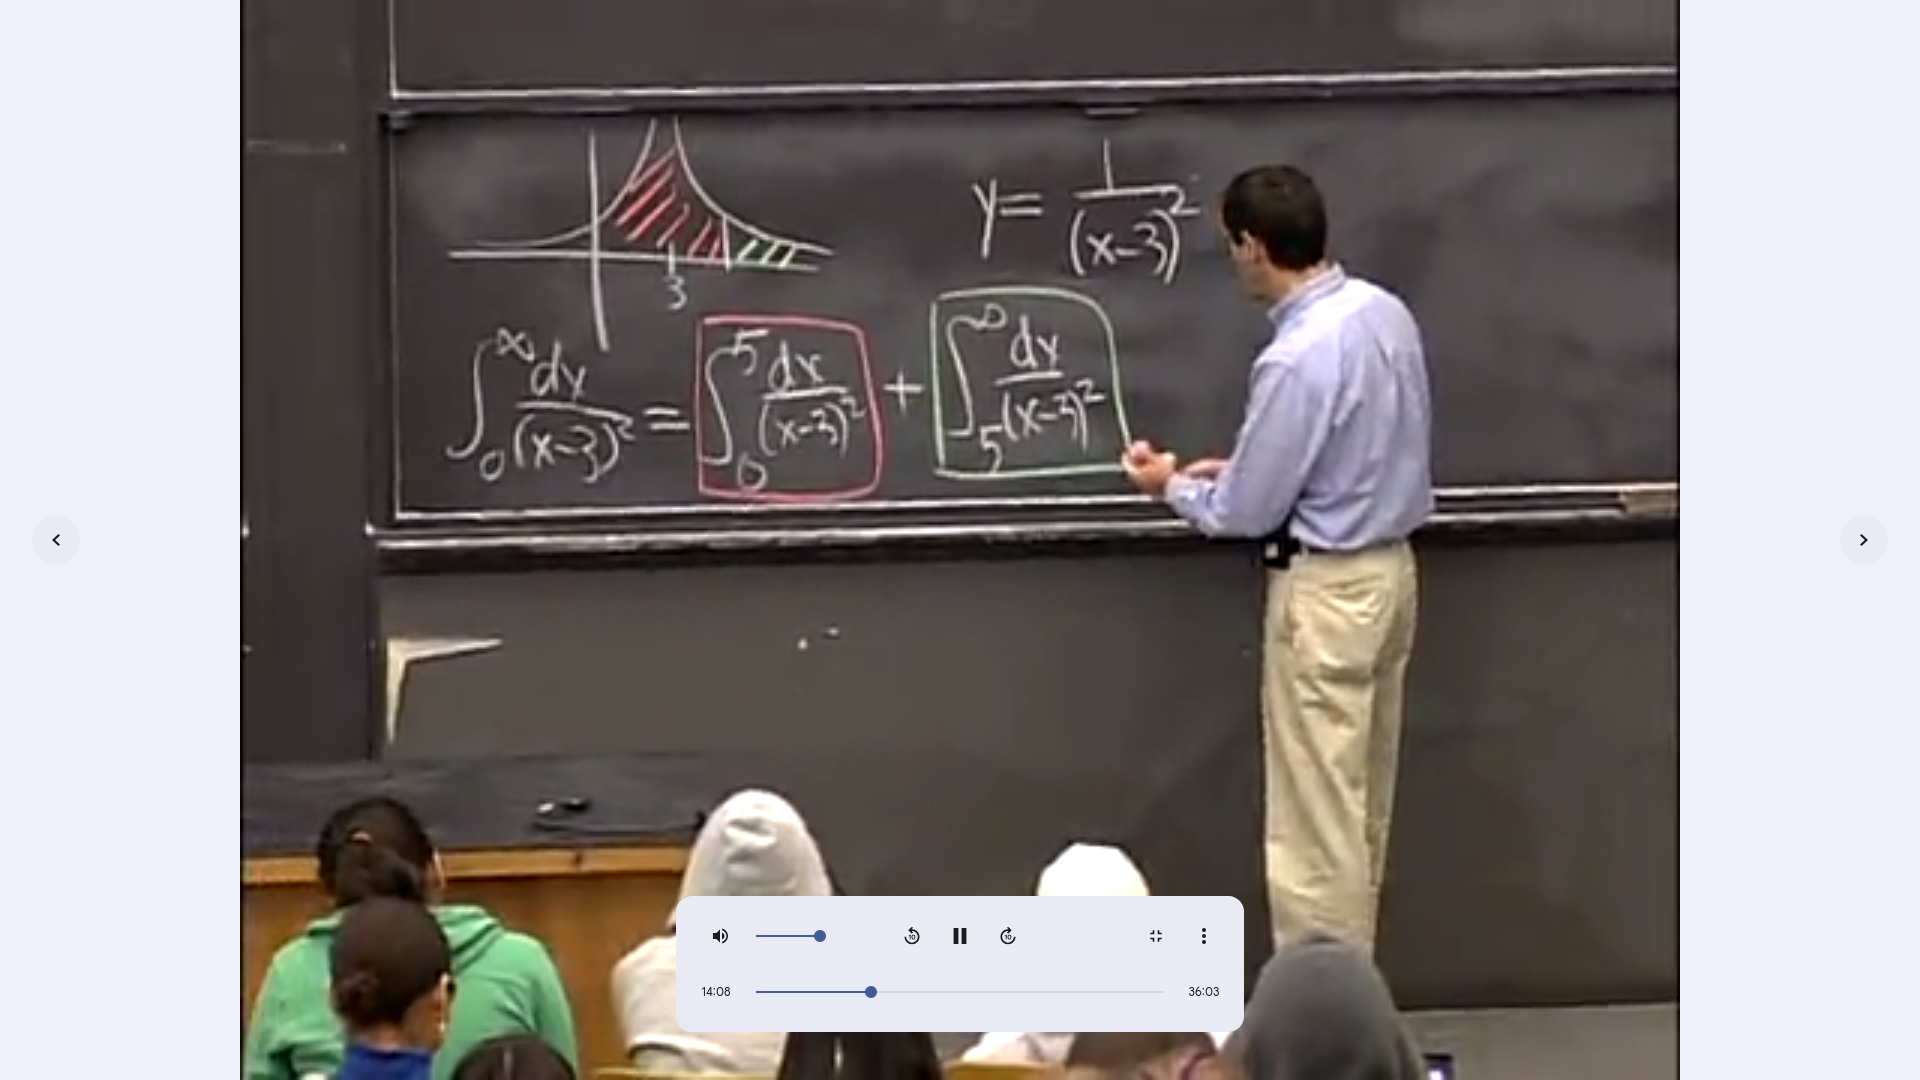 y = 1/(x-3)²
3
∫₀^∞ dx/(x-3)² = ∫₀^5 dx/(x-3)² + ∫₅^∞ dx/(x-3)²
10 10
14:08 36:03